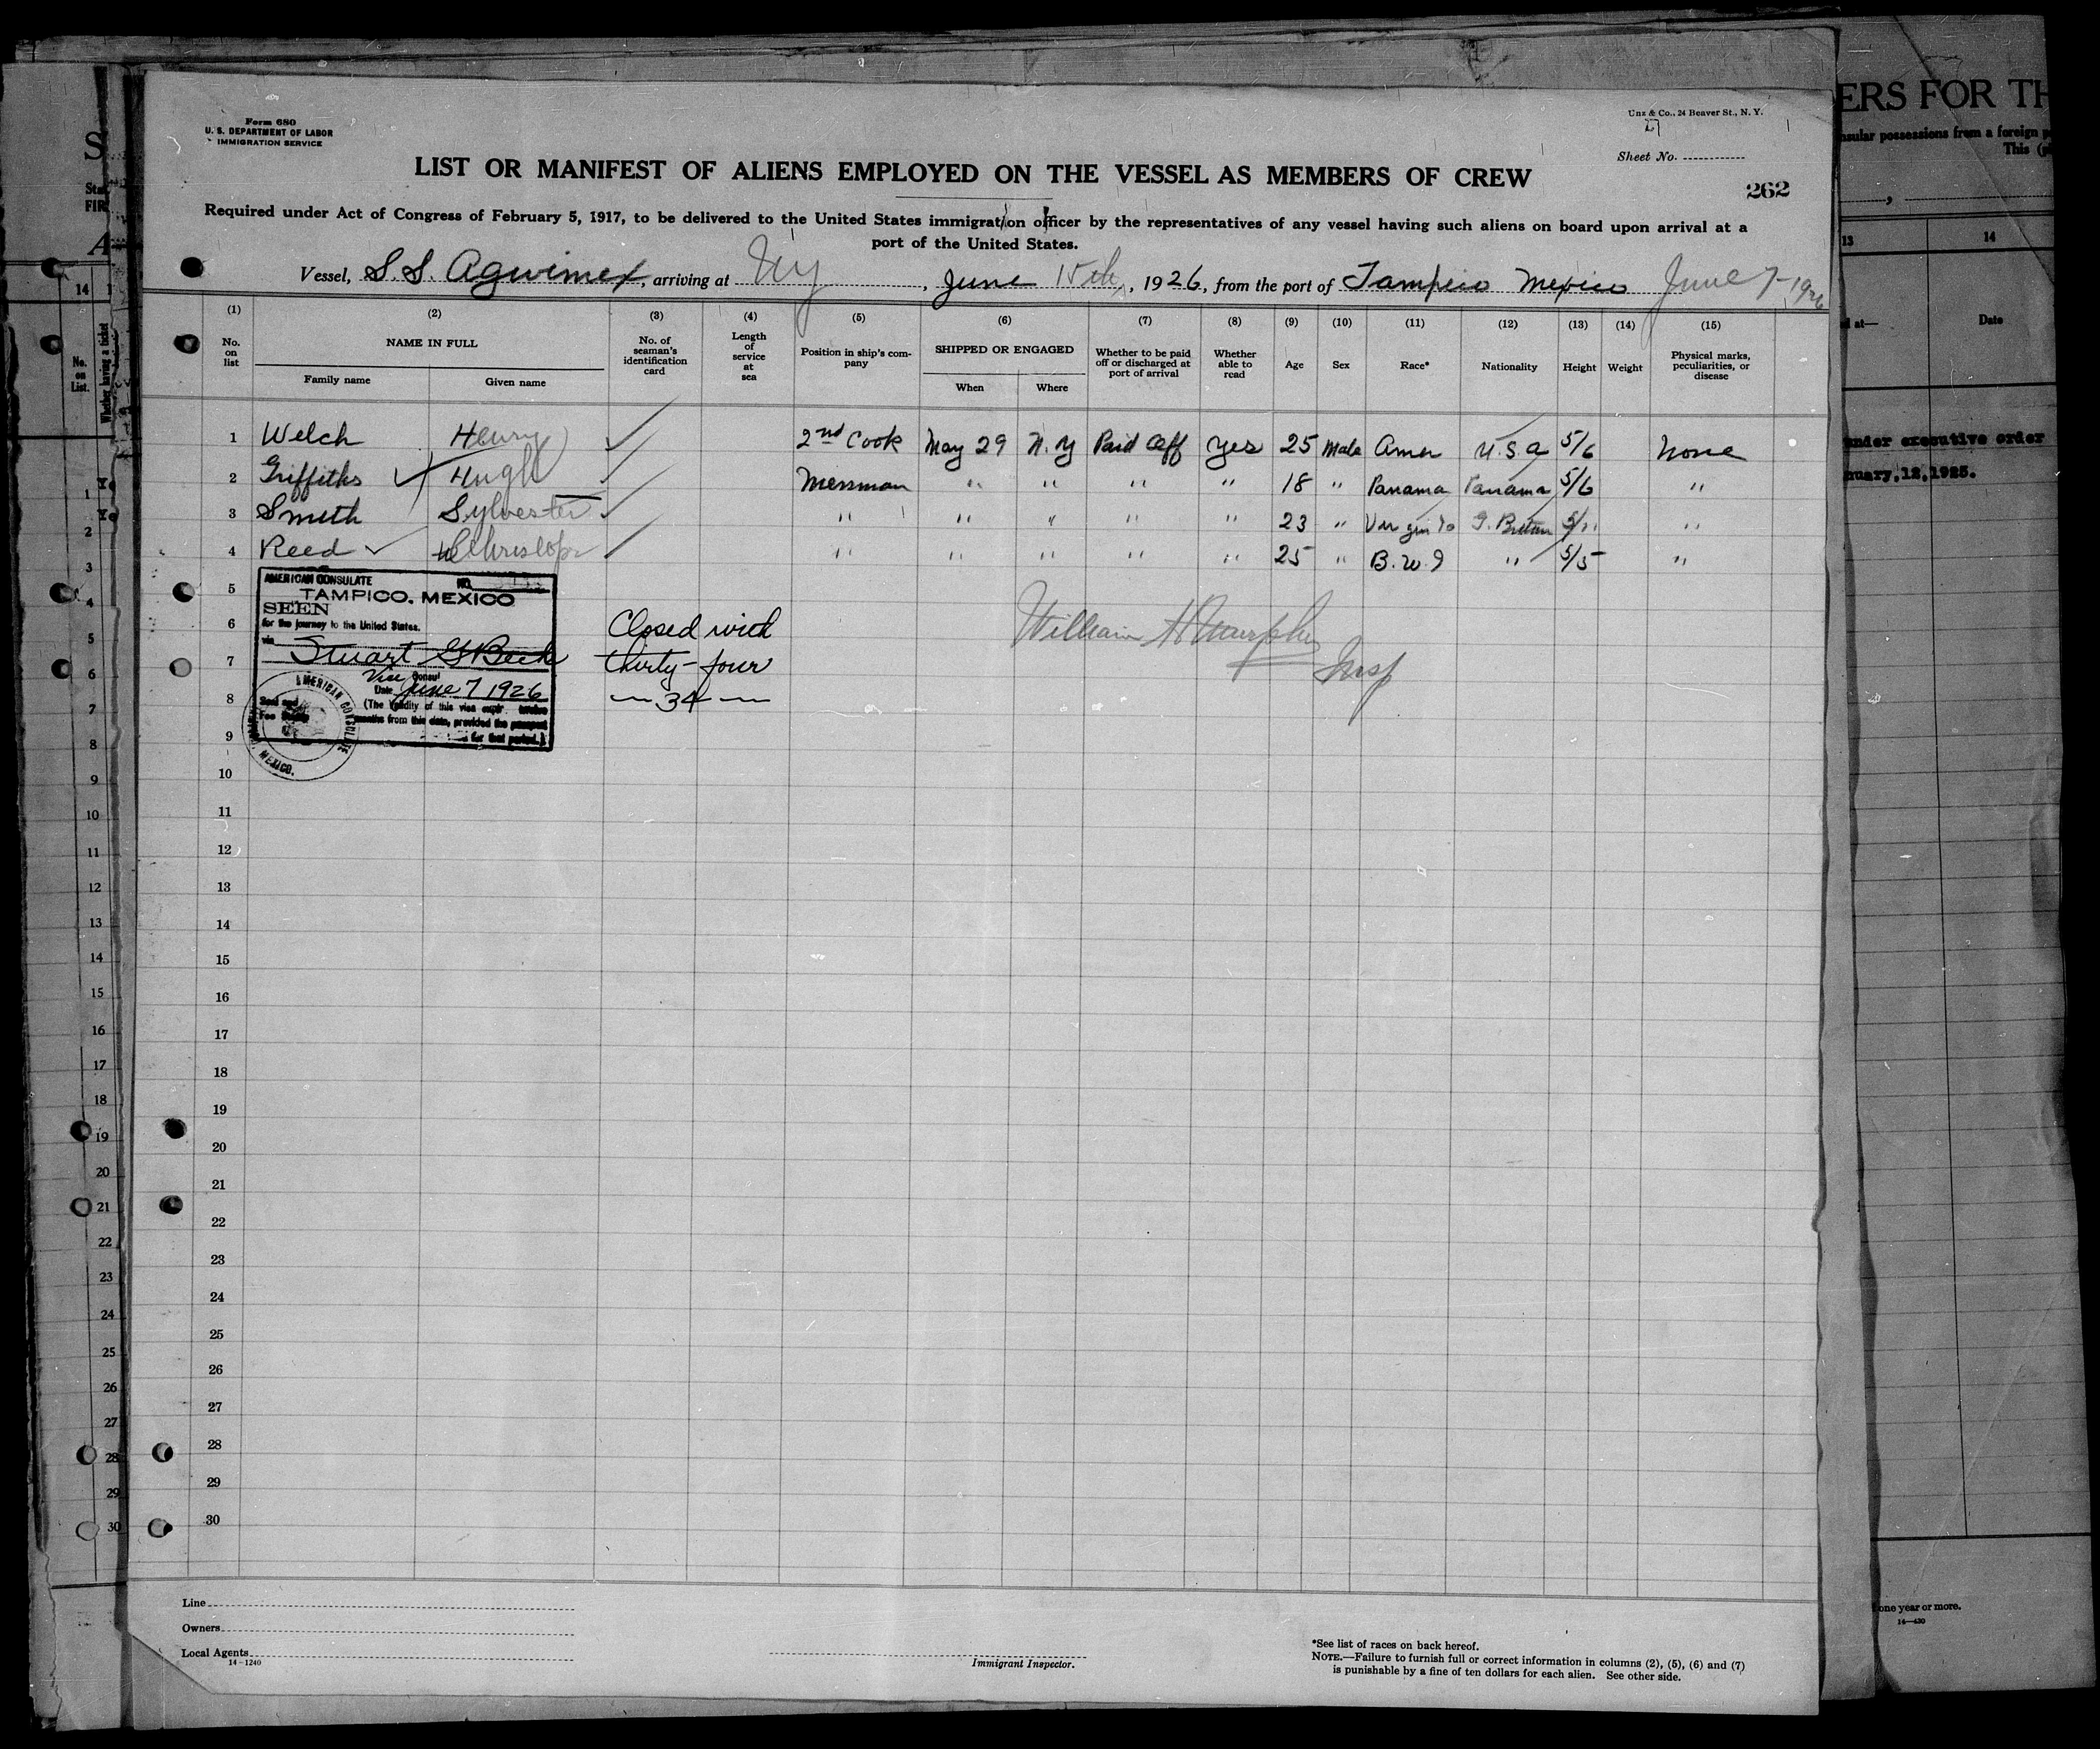 Form 680
U. S. DEPARTMENT OF LABOR
IMMIGRATION SERVICE
Unz & Co., 24 Beaver St., N. Y.
Sheet No.
LIST OR MANIFEST OF ALIENS EMPLOYED ON THE VESSEL AS MEMBERS OF CREW
262
Required under Act of Congress of February 5, 1917, to be delivered to the United States immigration officer by the representatives of any vessel having such aliens on board upon arrival at a
port of the United States.
Vessel, S.S. Agwimex, arriving at NY, June 15th, 1926, from the port of Tampico Mexico June 7-1926
(1) (2) (3) (4) (5) (6) (7) (8) (9) (10) (11) (12) (13) (14) (15)
No. on list NAME IN FULL Family name Given name No. of seaman's identification card Length of service at sea Position in ship's company SHIPPED OR ENGAGED When Where Whether to be paid off or discharged at port of arrival Whether able to read Age Sex Race* Nationality Height Weight Physical marks, peculiarities, or disease
1 Welch Henry 2nd Cook May 29 N.Y Paid Off Yes 25 Male Amer U.S.A 5/6 None
2 Griffiths Hugh Messman " " " " 18 " Panama Panama 5/6 "
3 Smith Sylvester " " " " " 23 " G. Britain 5/11 "
4 Reed " " " " " 25 " B.W.I " 5/5 "
5
6
7
8
9
10
11
12
13
14
15
16
17
18
19
20
21
22
23
24
25
26
27
28
29
30
AMERICAN CONSULATE NO.
TAMPICO, MEXICO
SEEN
for the journey to the United States.
via
Stuart G Beck
Vice Consul
Date June 7 1926
(The Validity of this visa
months from this date, provided the passport
for that period.)
AMERICAN CONSULATE
MEXICO.
Closed with
thirty-four
—34—
William H Murphy
Insp
Line
Owners
Local Agents
14-1240
Immigrant Inspector.
*See list of races on back hereof.
NOTE.—Failure to furnish full or correct information in columns (2), (5), (6) and (7)
is punishable by a fine of ten dollars for each alien. See other side.
ERS FOR TH
nsular possessions from a foreign
This
13 14
d at— Date
under executive order
nuary,12,1925.
one year or more.
14—430
14
No. on List.
Whether having a ticket
1
2
3
4
5
6
7
8
9
10
11
12
13
14
15
16
17
18
19
20
21
22
23
24
25
26
27
28
29
30